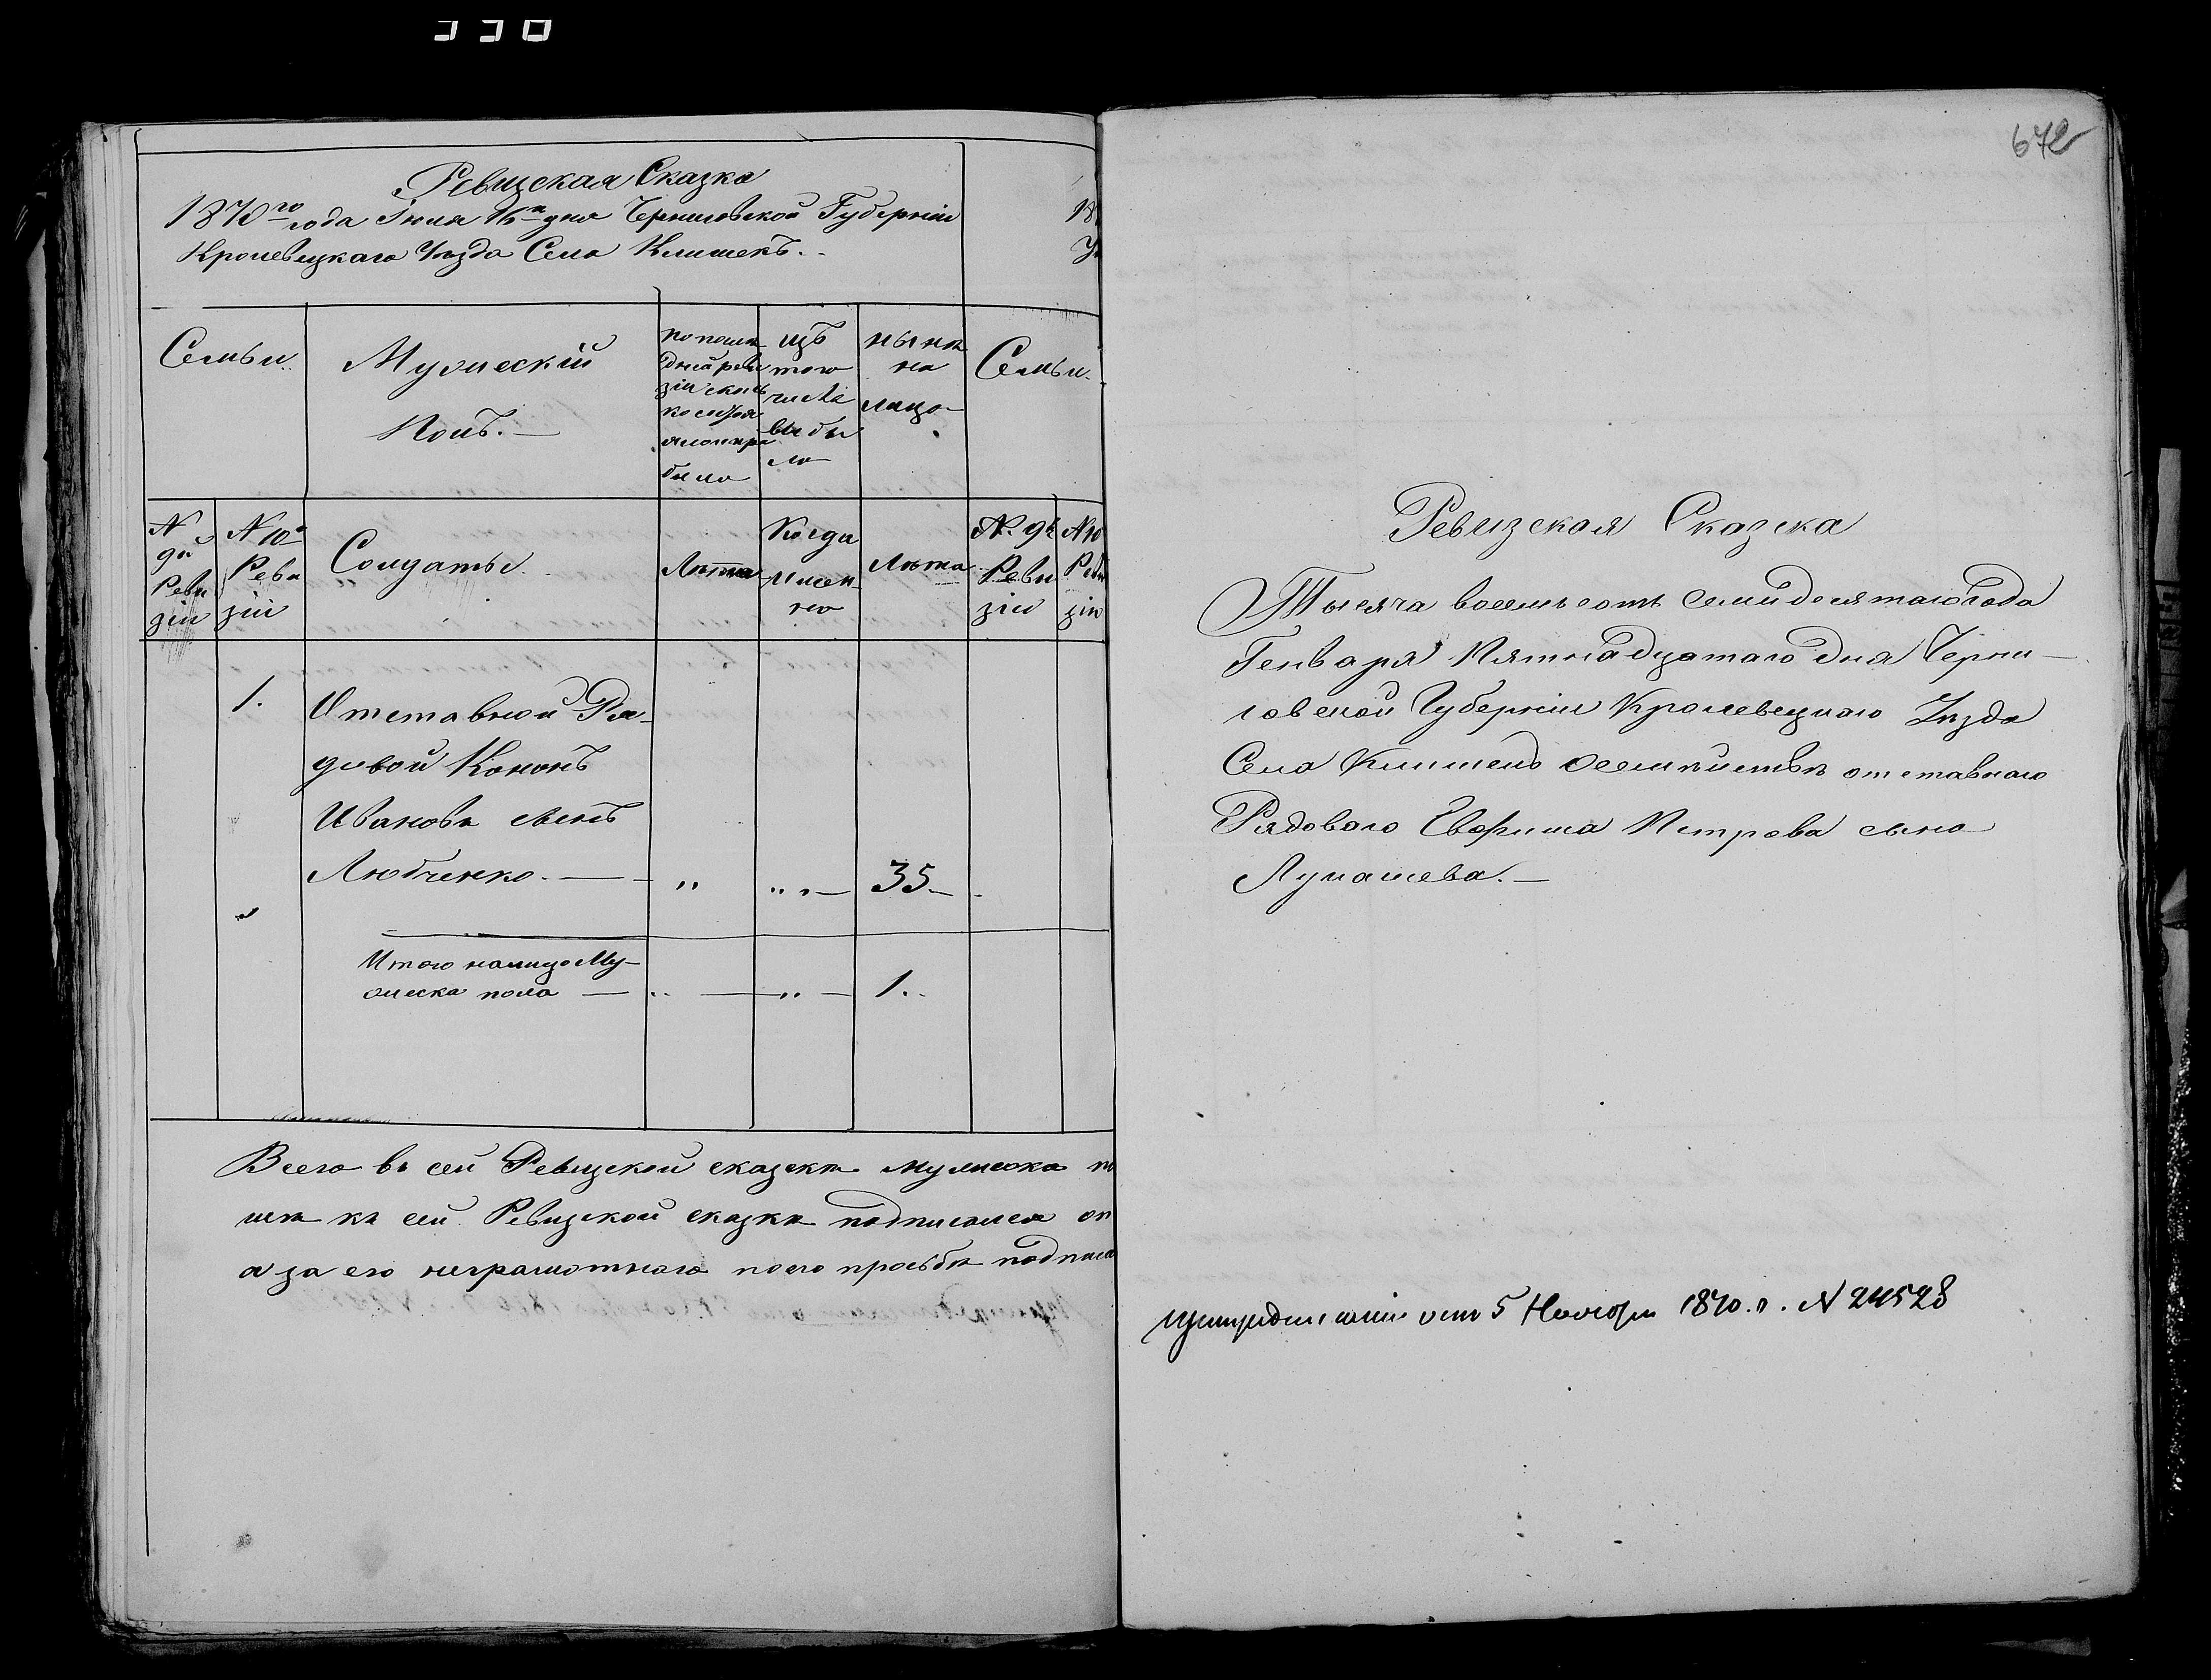 Ревизская Сказка
1870го года Іюля 16го дня Черниговской Губерніи
Кролевецкаго Уѣзда Села Клишекъ.
18
У
Семьи
Мужескій
Полъ.
по послѣ
дней реви
зіи
было
изъ
того
числа
выбы
ло
нынѣ
на
лицо
Семьи
№
9й
Реви
зіи
№ 10й
Реви
зіи
Солдаты.
Лѣта
Когда
имен-
но
Лѣта
№ 9й
Реви
зіи
№ 10
Реви
зіи
1.
Отставной Ря-
довой Кононъ
Ивановъ сынъ
Любченко. — „ „ „ — 35. —
Итого налицо Му-
жеска пола — „ — „ — 1.
Всего въ сей Ревизской сказкѣ мужеска по
къ сей Ревизской сказкѣ подписался
а за его неграмотнаго по его прозьбѣ подписа
672
Ревизская Сказка
Тысяча восемъ сотъ семидесятаго года
Генваря Пятнадцатаго дня Черни-
говской Губерніи Кролевецкаго Уѣзда
Села Клишекъ о семействѣ отставнаго
Рядоваго Евфима Петрова сына
Лукашева. —
при предписаніи отъ 5 Ноября 1870. г. № 24528